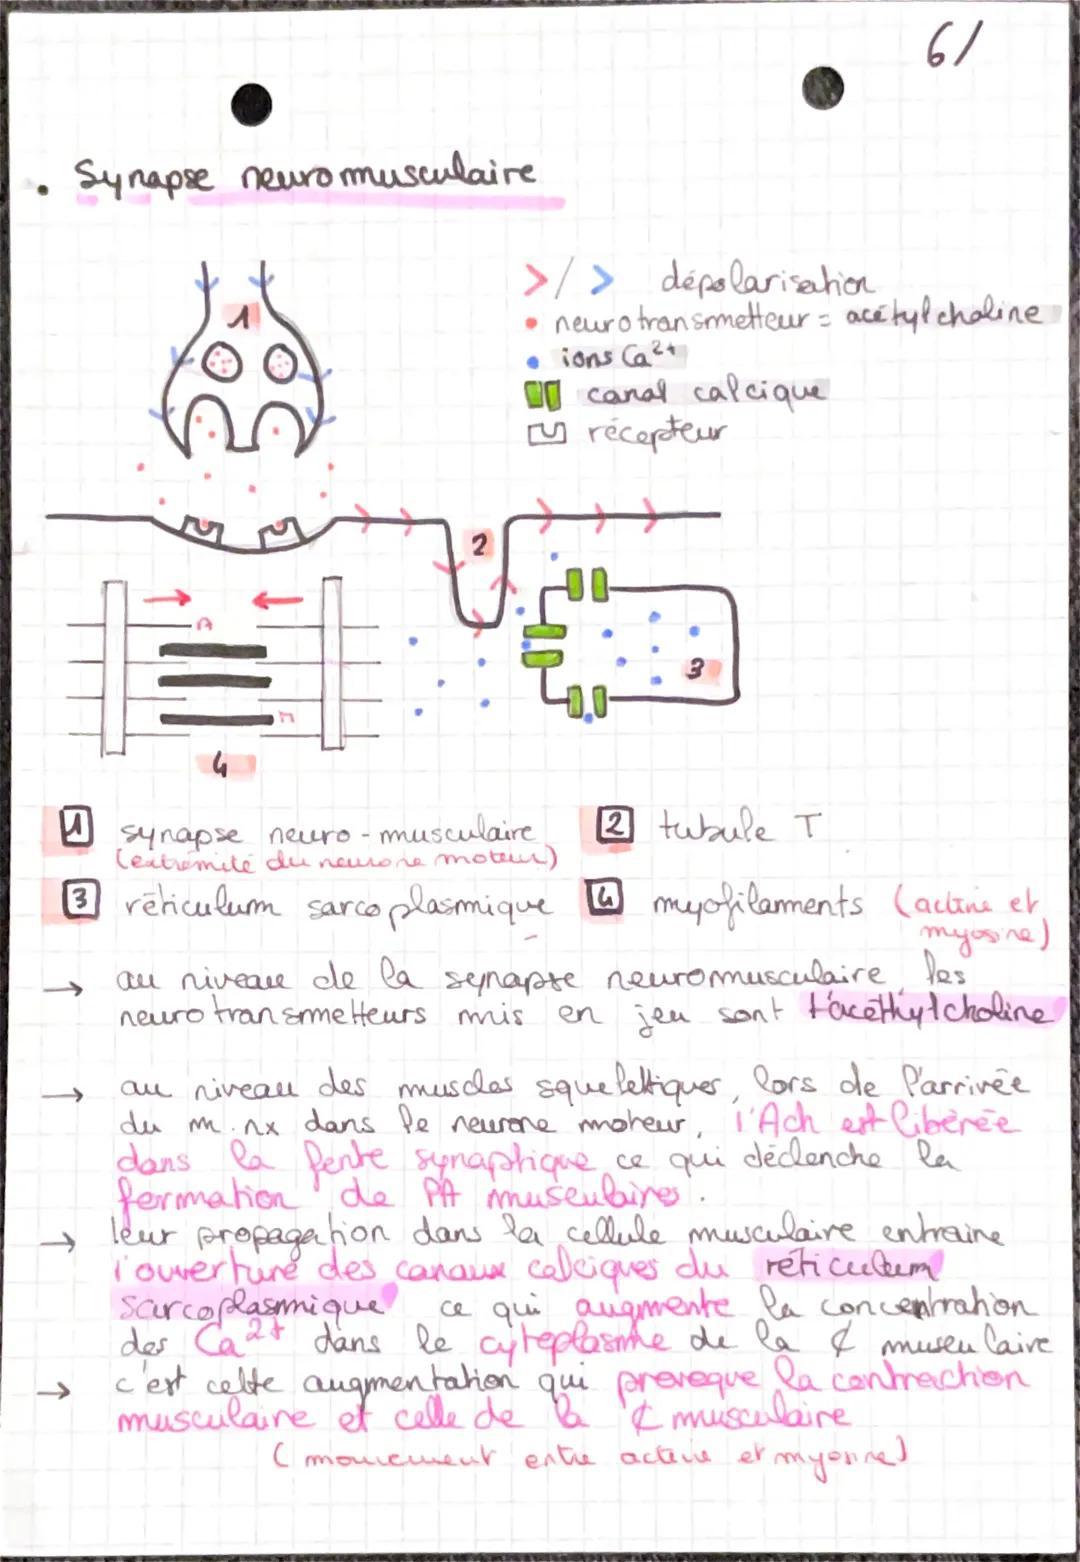 6/
• Synapse neuromusculaire
1
>/> dépolarisation
• neurotransmetteur = acétylcholine
• ions Ca²⁺
canal calcique
récepteur
2
A
3
M
4
1 synapse neuro-musculaire
(extrémité du neurone moteur)
2 tubule T
3 réticulum sarcoplasmique
4 myofilamments (actine et
myosine)
→ au niveau de la synapse neuromusculaire, les
neurotransmetteurs mis en jeu sont l'acéthylcholine
→ au niveau des muscles squelettiques, lors de l'arrivée
du m. nx dans le neurone moteur, l'Ach est libérée
dans la fente synaptique ce qui déclenche la
formation de PA musculaires.
→ leur propagation dans la cellule musculaire entraine
l'ouverture des canaux calciques du réticulum
sarcoplasmique ce qui augmente la concentration
des Ca²⁺ dans le cytoplasme de la ¢ musculaire
→ c'est cette augmentation qui provoque la contraction
musculaire et celle de la ¢ musculaire
(mouvement entre actine et myosine)